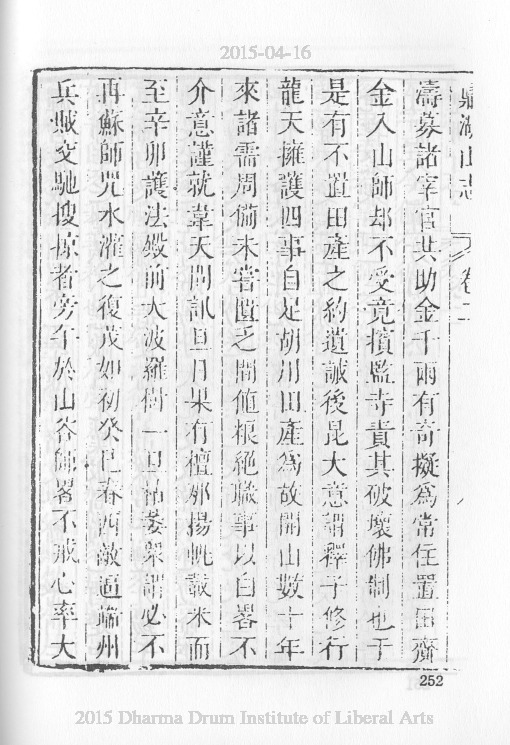 2015-04-16
鼎湖山志 卷二
濤募諸宰官共助金千兩有奇擬為常住置田齎
金入山師却不受竟擯監寺責其破壞佛制也于
是有不置田產之約遺誡後昆大意謂釋子修行
龍天擁護四事自足胡用田產為故開山數十年
來諸需周備未嘗匱乏間值粮絕職事以白畧不
介意謹就韋天問訊旦日果有檀那揚帆載米而
至辛卯護法殿前大波羅樹一旦枯萎眾謂必不
再蘇師咒水灌之復茂如初癸巳春西敵逼端州
兵賊交馳搜掠者旁午於山谷師畧不戒心率大
252
2015 Dharma Drum Institute of Liberal Arts